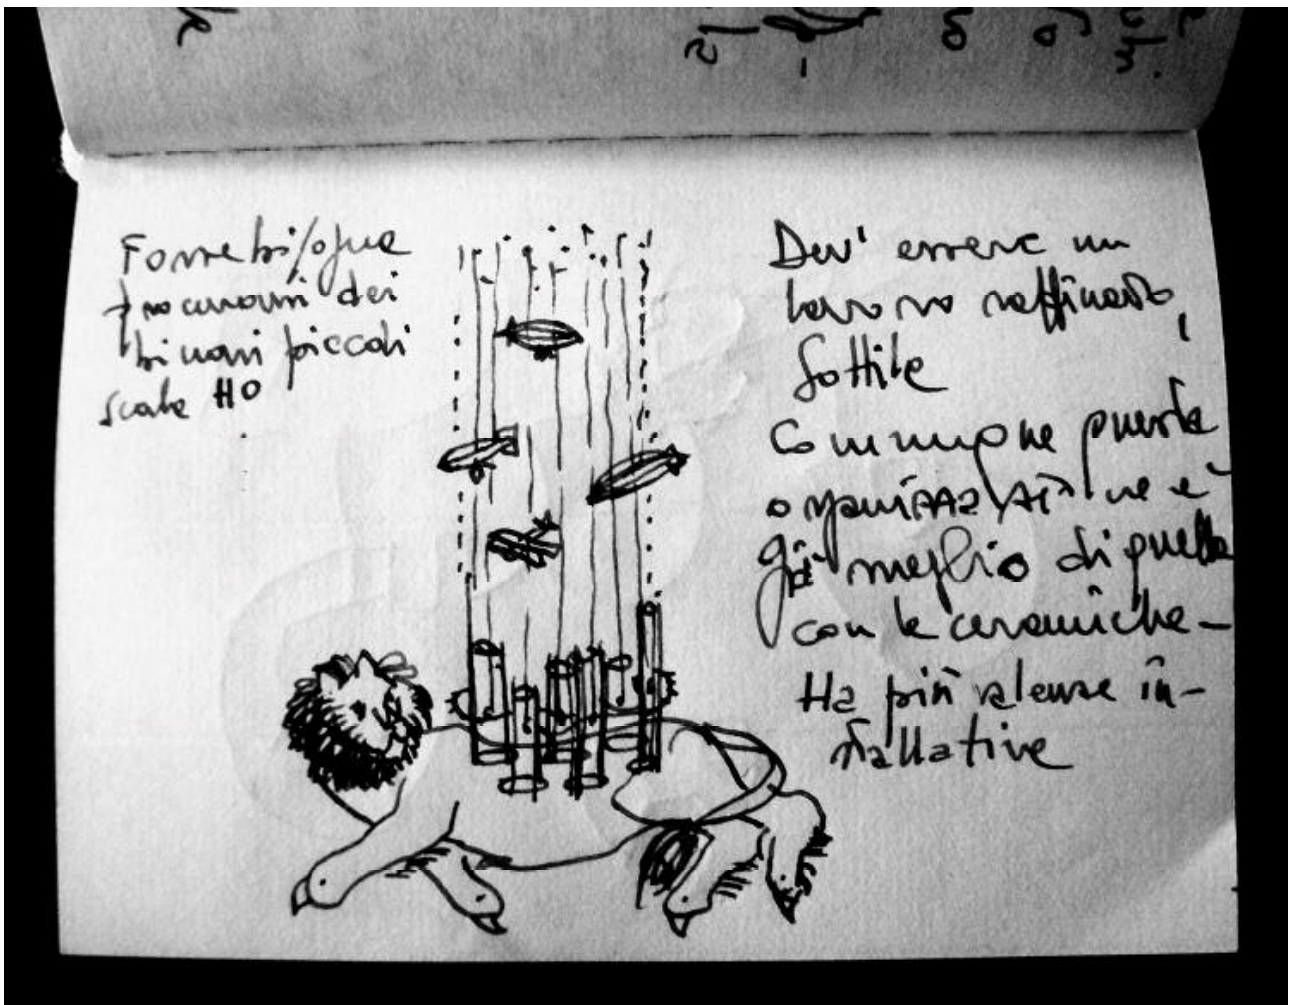 Forse bisogna
procurarmi dei
binari piccoli
scala HO
Dev' essere un
lavoro raffinato,
sottile
Comunque questa
organizzazione è
già meglio di quella
con le ceramiche –
Ha più valenze in-
stallative